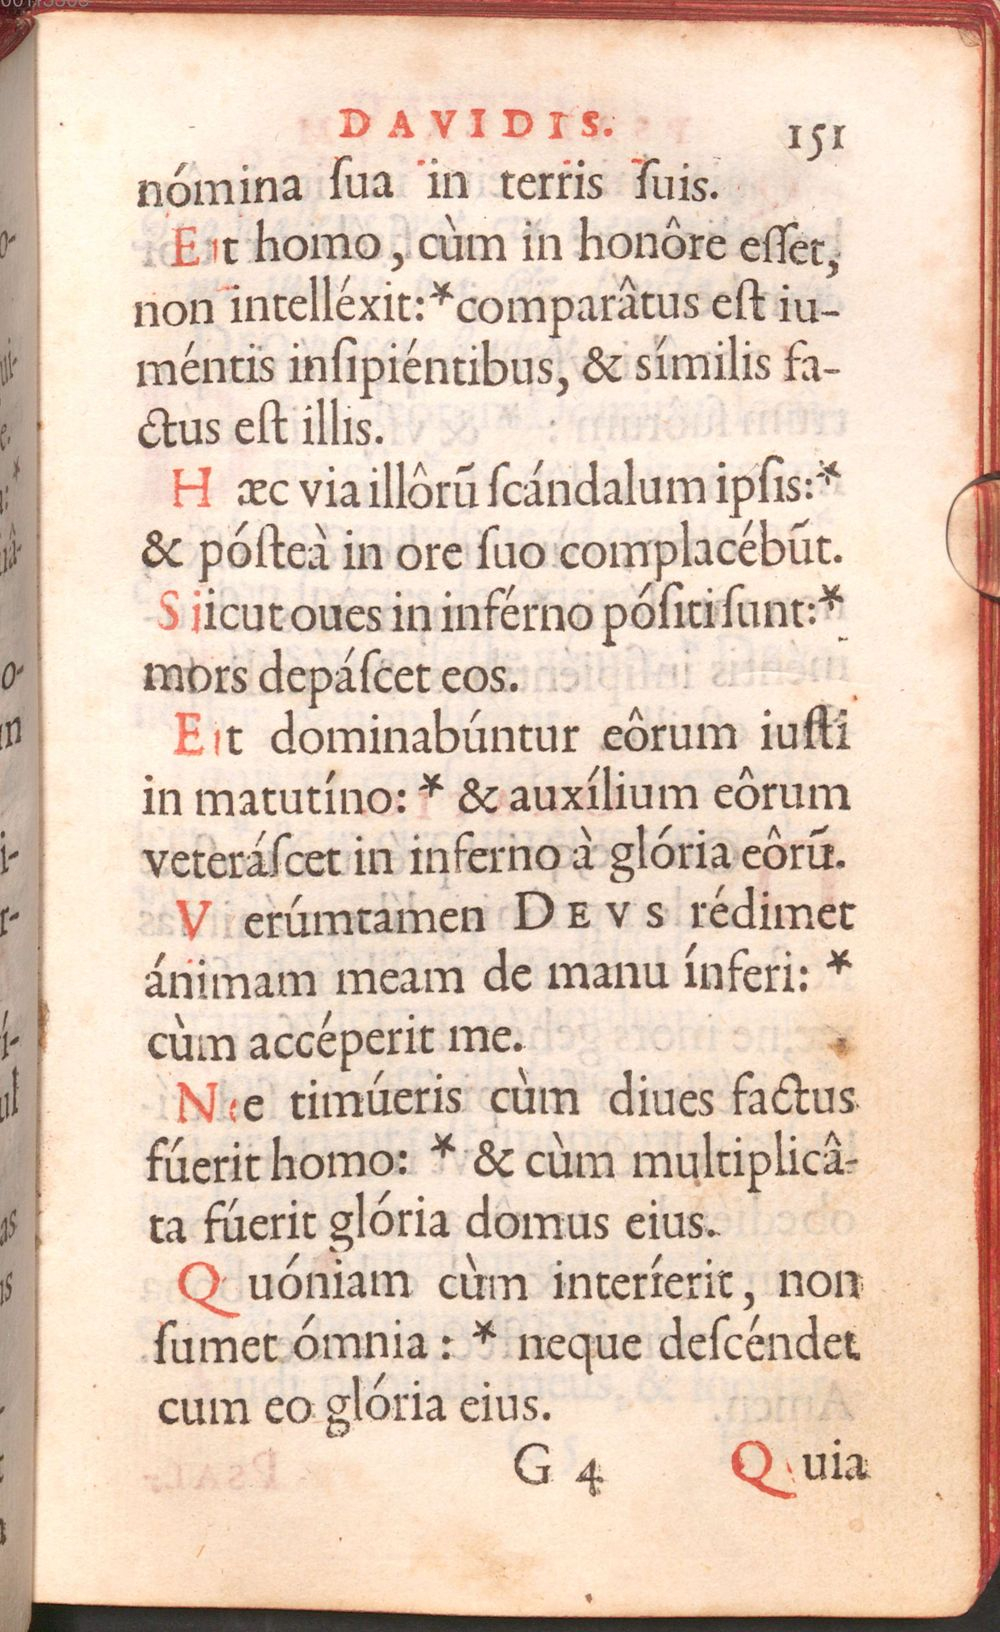 DAVIDIS. 151
nómina ſua in terris ſuis.
Et homo, cùm in honôre eſſet,
non intelléxit:*comparâtus eſt iu-
méntis inſipiéntibus, & símilis fa-
ctus eſt illis.
Hæc via illôrũ ſcándalum ipſis:*
& póſteà in ore ſuo complacébũt.
Sicut oues in inférno póſiti ſunt:*
mors depáſcet eos.
Et dominabúntur eôrum iuſti
in matutíno: * & auxílium eôrum
veteráſcet in inferno à glória eôrũ.
Verúmtamen DEVS rédimet
ánimam meam de manu ínferi: *
cùm accéperit me.
Ne timúeris cùm diues factus
fúerit homo: * & cùm multiplicâ-
ta fúerit glória domus eius.
Quóniam cùm interíerit, non
ſumet ómnia : * neque deſcéndet
cum eo glória eius.
G 4 Quia